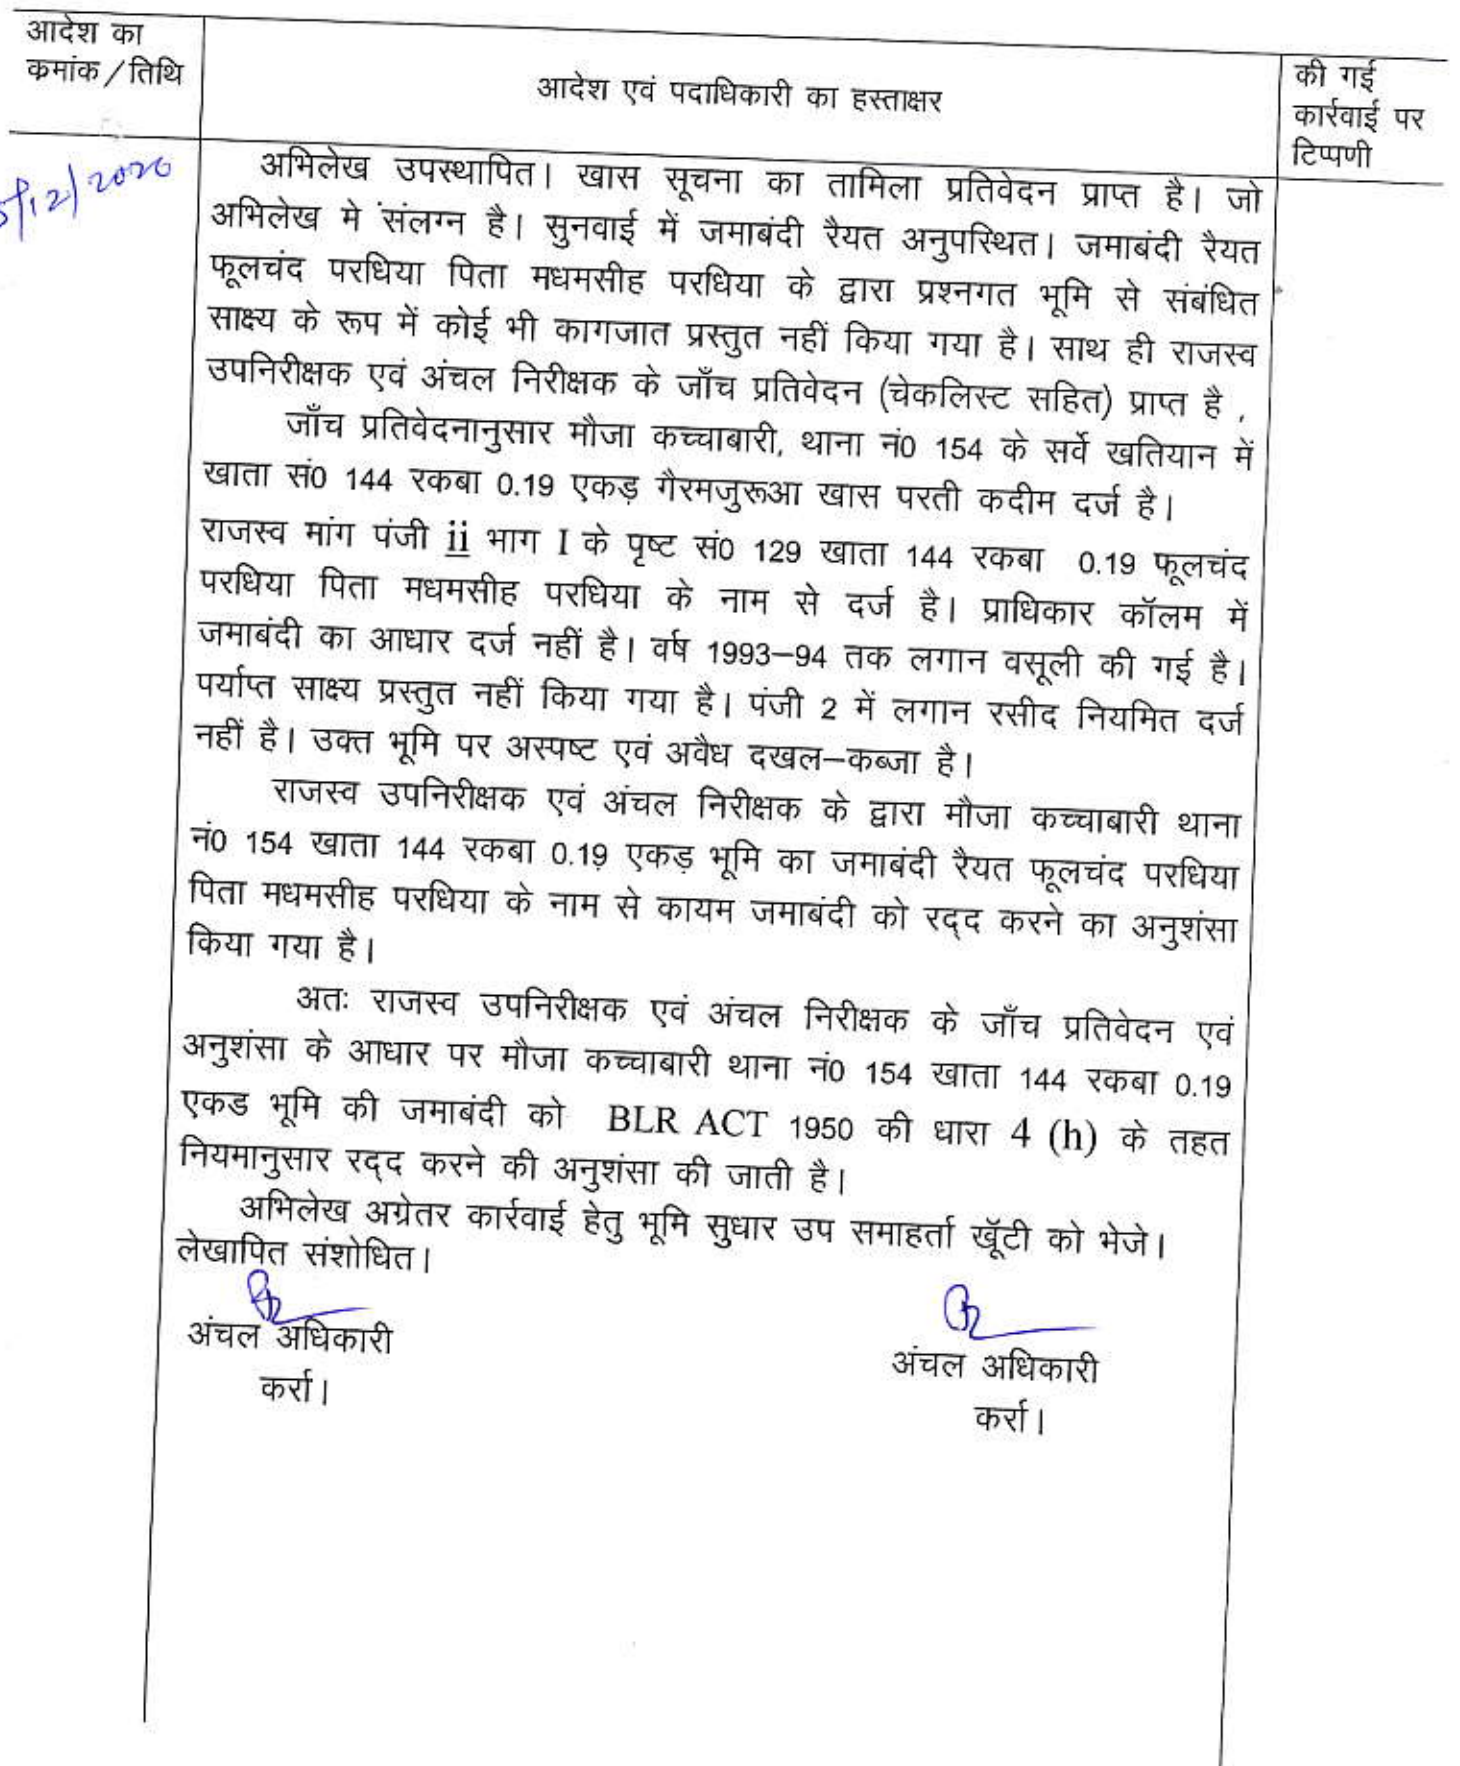 आदेश का
कमांक/तिथि
आदेश एवं पदाधिकारी का हस्ताक्षर
की गई
कार्रवाई पर
टिप्पणी
/12/2020
अभिलेख उपस्थापित। खास सूचना का तामिला प्रतिवेदन प्राप्त है। जो
अभिलेख मे संलग्न है। सुनवाई में जमाबंदी रैयत अनुपस्थित। जमाबंदी रैयत
फूलचंद परधिया पिता मधमसीह परधिया के द्वारा प्रश्नगत भूमि से संबंधित
साक्ष्य के रूप में कोई भी कागजात प्रस्तुत नहीं किया गया है। साथ ही राजस्व
उपनिरीक्षक एवं अंचल निरीक्षक के जाँच प्रतिवेदन (चेकलिस्ट सहित) प्राप्त है ,
जाँच प्रतिवेदनानुसार मौजा कच्चाबारी, थाना नं0 154 के सर्वे खतियान में
खाता सं0 144 रकबा 0.19 एकड़ गैरमजुरूआ खास परती कदीम दर्ज है।
राजस्व मांग पंजी ii भाग I के पृष्ट सं0 129 खाता 144 रकबा 0.19 फूलचंद
परधिया पिता मधमसीह परधिया के नाम से दर्ज है। प्राधिकार कॉलम में
जमाबंदी का आधार दर्ज नहीं है। वर्ष 1993–94 तक लगान वसूली की गई है।
पर्याप्त साक्ष्य प्रस्तुत नहीं किया गया है। पंजी 2 में लगान रसीद नियमित दर्ज
नहीं है। उक्त भूमि पर अस्पष्ट एवं अवैध दखल–कब्जा है।
राजस्व उपनिरीक्षक एवं अंचल निरीक्षक के द्वारा मौजा कच्चाबारी थाना
नं0 154 खाता 144 रकबा 0.19 एकड़ भूमि का जमाबंदी रैयत फूलचंद परधिया
पिता मधमसीह परधिया के नाम से कायम जमाबंदी को रद्द करने का अनुशंसा
किया गया है।
अतः राजस्व उपनिरीक्षक एवं अंचल निरीक्षक के जाँच प्रतिवेदन एवं
अनुशंसा के आधार पर मौजा कच्चाबारी थाना नं0 154 खाता 144 रकबा 0.19
एकड भूमि की जमाबंदी को BLR ACT 1950 की धारा 4 (h) के तहत
नियमानुसार रद्द करने की अनुशंसा की जाती है।
अभिलेख अग्रेतर कार्रवाई हेतु भूमि सुधार उप समाहर्ता खूँटी को भेजे।
लेखापित संशोधित।
अंचल अधिकारी
कर्रा।
अंचल अधिकारी
कर्रा।